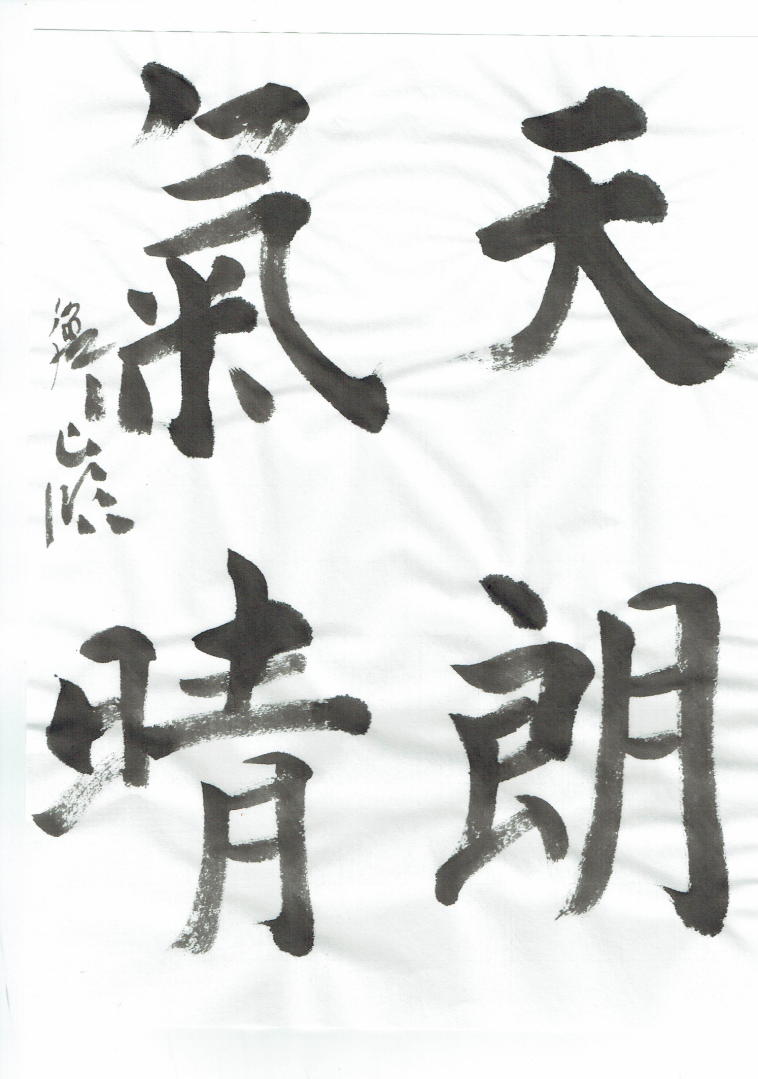 天朗
氣晴